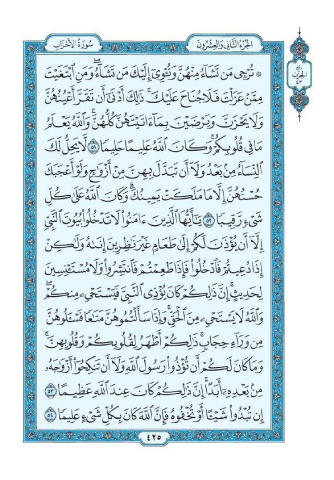 الجزء الثاني والعشرون
سورة الأحزاب
۞ تُرْجِي مَن تَشَآءُ مِنْهُنَّ وَتُـْٔوِىٓ إِلَيْكَ مَن تَشَآءُ وَمَنِ ٱبْتَغَيْتَ
مِمَّنْ عَزَلْتَ فَلَا جُنَاحَ عَلَيْكَ ذَٰلِكَ أَدْنَىٰٓ أَن تَقَرَّ أَعْيُنُهُنَّ
وَلَا يَحْزَنَّ وَيَرْضَيْنَ بِمَآ ءَاتَيْتَهُنَّ كُلُّهُنَّ وَٱللَّهُ يَعْلَمُ
مَا فِى قُلُوبِكُمْ وَكَانَ ٱللَّهُ عَلِيمًا حَلِيمًا ٥١ لَّا يَحِلُّ لَكَ
ٱلنِّسَآءُ مِنۢ بَعْدُ وَلَآ أَن تَبَدَّلَ بِهِنَّ مِنْ أَزْوَٰجٍ وَلَوْ أَعْجَبَكَ
حُسْنُهُنَّ إِلَّا مَا مَلَكَتْ يَمِينُكَ وَكَانَ ٱللَّهُ عَلَىٰ كُلِّ
شَىْءٍ رَّقِيبًا ٥٢ يَـٰٓأَيُّهَا ٱلَّذِينَ ءَامَنُوا۟ لَا تَدْخُلُوا۟ بُيُوتَ ٱلنَّبِىِّ
إِلَّآ أَن يُؤْذَنَ لَكُمْ إِلَىٰ طَعَامٍ غَيْرَ نَـٰظِرِينَ إِنَىٰهُ وَلَـٰكِنْ
إِذَا دُعِيتُمْ فَٱدْخُلُوا۟ فَإِذَا طَعِمْتُمْ فَٱنتَشِرُوا۟ وَلَا مُسْتَـْٔنِسِينَ
لِحَدِيثٍ إِنَّ ذَٰلِكُمْ كَانَ يُؤْذِى ٱلنَّبِىَّ فَيَسْتَحْىِۦ مِنكُمْ
وَٱللَّهُ لَا يَسْتَحْىِۦ مِنَ ٱلْحَقِّ وَإِذَا سَأَلْتُمُوهُنَّ مَتَـٰعًا فَسْـَٔلُوهُنَّ
مِن وَرَآءِ حِجَابٍ ذَٰلِكُمْ أَطْهَرُ لِقُلُوبِكُمْ وَقُلُوبِهِنَّ
وَمَا كَانَ لَكُمْ أَن تُؤْذُوا۟ رَسُولَ ٱللَّهِ وَلَآ أَن تَنكِحُوٓا۟ أَزْوَٰجَهُۥ
مِنۢ بَعْدِهِۦٓ أَبَدًا إِنَّ ذَٰلِكُمْ كَانَ عِندَ ٱللَّهِ عَظِيمًا ٥٣
إِن تُبْدُوا۟ شَيْـًٔا أَوْ تُخْفُوهُ فَإِنَّ ٱللَّهَ كَانَ بِكُلِّ شَىْءٍ عَلِيمًا ٥٤
٤٢٥